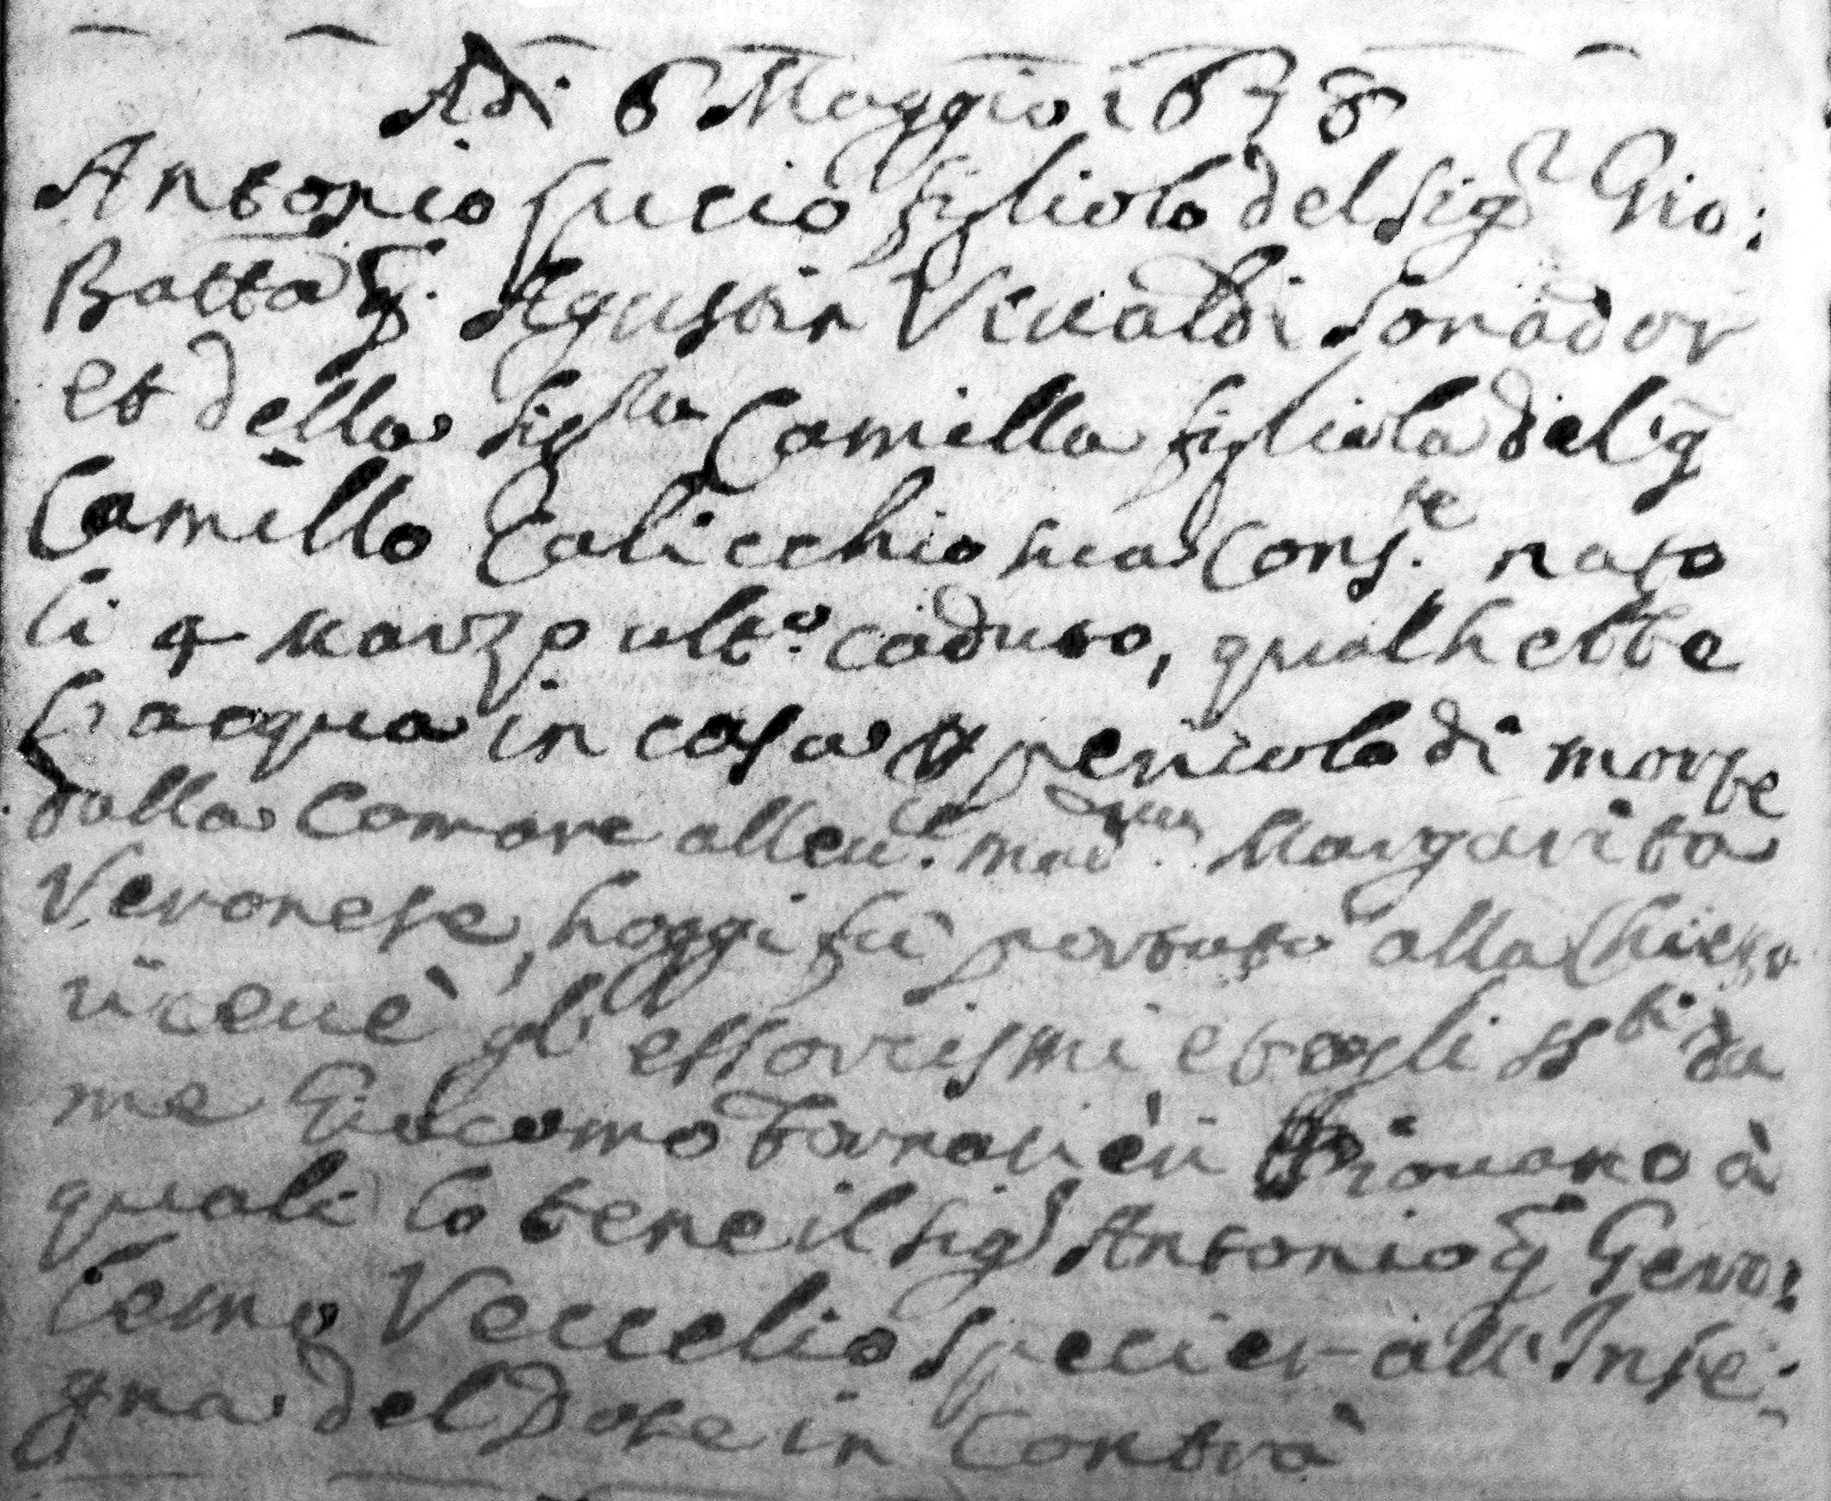 Adi 6 Maggio 1678
Antonio Lucio figliolo del Sigr Gio:
Batta q. Agustin Viualdi Sonador
et della Sigra Camilla figliola del q
Camillo Calicchio sua Conste. nato
li 4 Marzo ulto. caduto, qual hebbe
l'acqua in casa p pericolo di morte
dalla Comare alleuce. madna. Margarita
Veronese, hoggi fù portato alla Chiesa
riceuè gl' essorcismi et ogli SSti da
me Giacomo Fornacieri Piouano à
quali lo tene il Sigr Antonio q Gero:
lemo Veccelio Specier all' Inse:
gna del Dose in Contrà